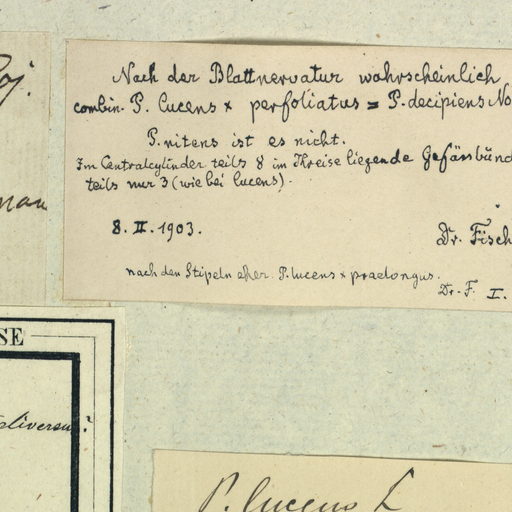 oj.
Nach der Blattnervatur wahrscheinlich
combin. P. lucens x perfoliatus = P. decipiens No
P. nitens ist es nicht.
Im Centralcylinder teils 8 im Kreise liegende Gefässbünd
teils nur 3 (wie bei lucens).
8. II. 1903.
Dr. Fisch
nach den Stipeln eher P. lucens x praelongus.
Dr. F. I.
SE
P. lucens L